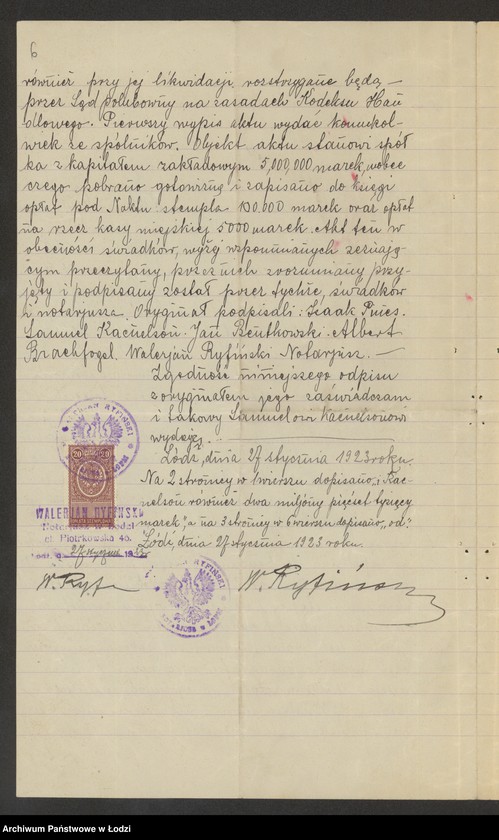 6
również przy jej likwidacji rozstrzygane będą —
przez Sąd polubowny na zasadach Kodeksu Han
dlowego. Pierwszy wypis aktu wydać komukol-
wiek ze spólników. Objekt aktu stanowi spół
ka z kapitałem zakładowym 5,000,000 marek, wobec
czego pobrano gotowizną i zapisano do księgi
opłat pod № aktu stempla 100.000 marek oraz opłat
na rzecz kasy miejskiej 5000 marek. Akt ten w
obecności świadków, wyżej wspomnianych zeznają-
cym przeczytany, przez nich zrozumiany przy-
jęty i podpisany został przez tychże, świadków
i notarjusza. Oryginał podpisali: Izaak Pines.
Samuel Kacnelson. Jan Bentkowski. Albert
Brachfogel. Walerjan Ryfiński Notarjusz. —
Zgodność niniejszego odpisu
z oryginałem jego zaświadczam
i takowy Samuelowi Kacnelsonowi
wydaję.
Łódź, dnia 27 stycznia 1923 roku.
Na 2 stronicy w wierszu dopisano „i Kac-
nelson również dwa miljony pięćset tysięcy
marek," a na 3 stronicy w 6 wierszu dopisano „od"
Łódź, dnia 27 stycznia 1923 roku.
20 20
WALERJAN RYFIŃSKI
Notarjusz w Łodzi
ul. Piotrkowska 46.
27 stycznia 19
W. Ryf
W. Ryfiński
WALERJAN RYFIŃSKI
RYFIŃSKI
NOTARJUSZ w ŁODZI
Archiwum Państwowe w Łodzi